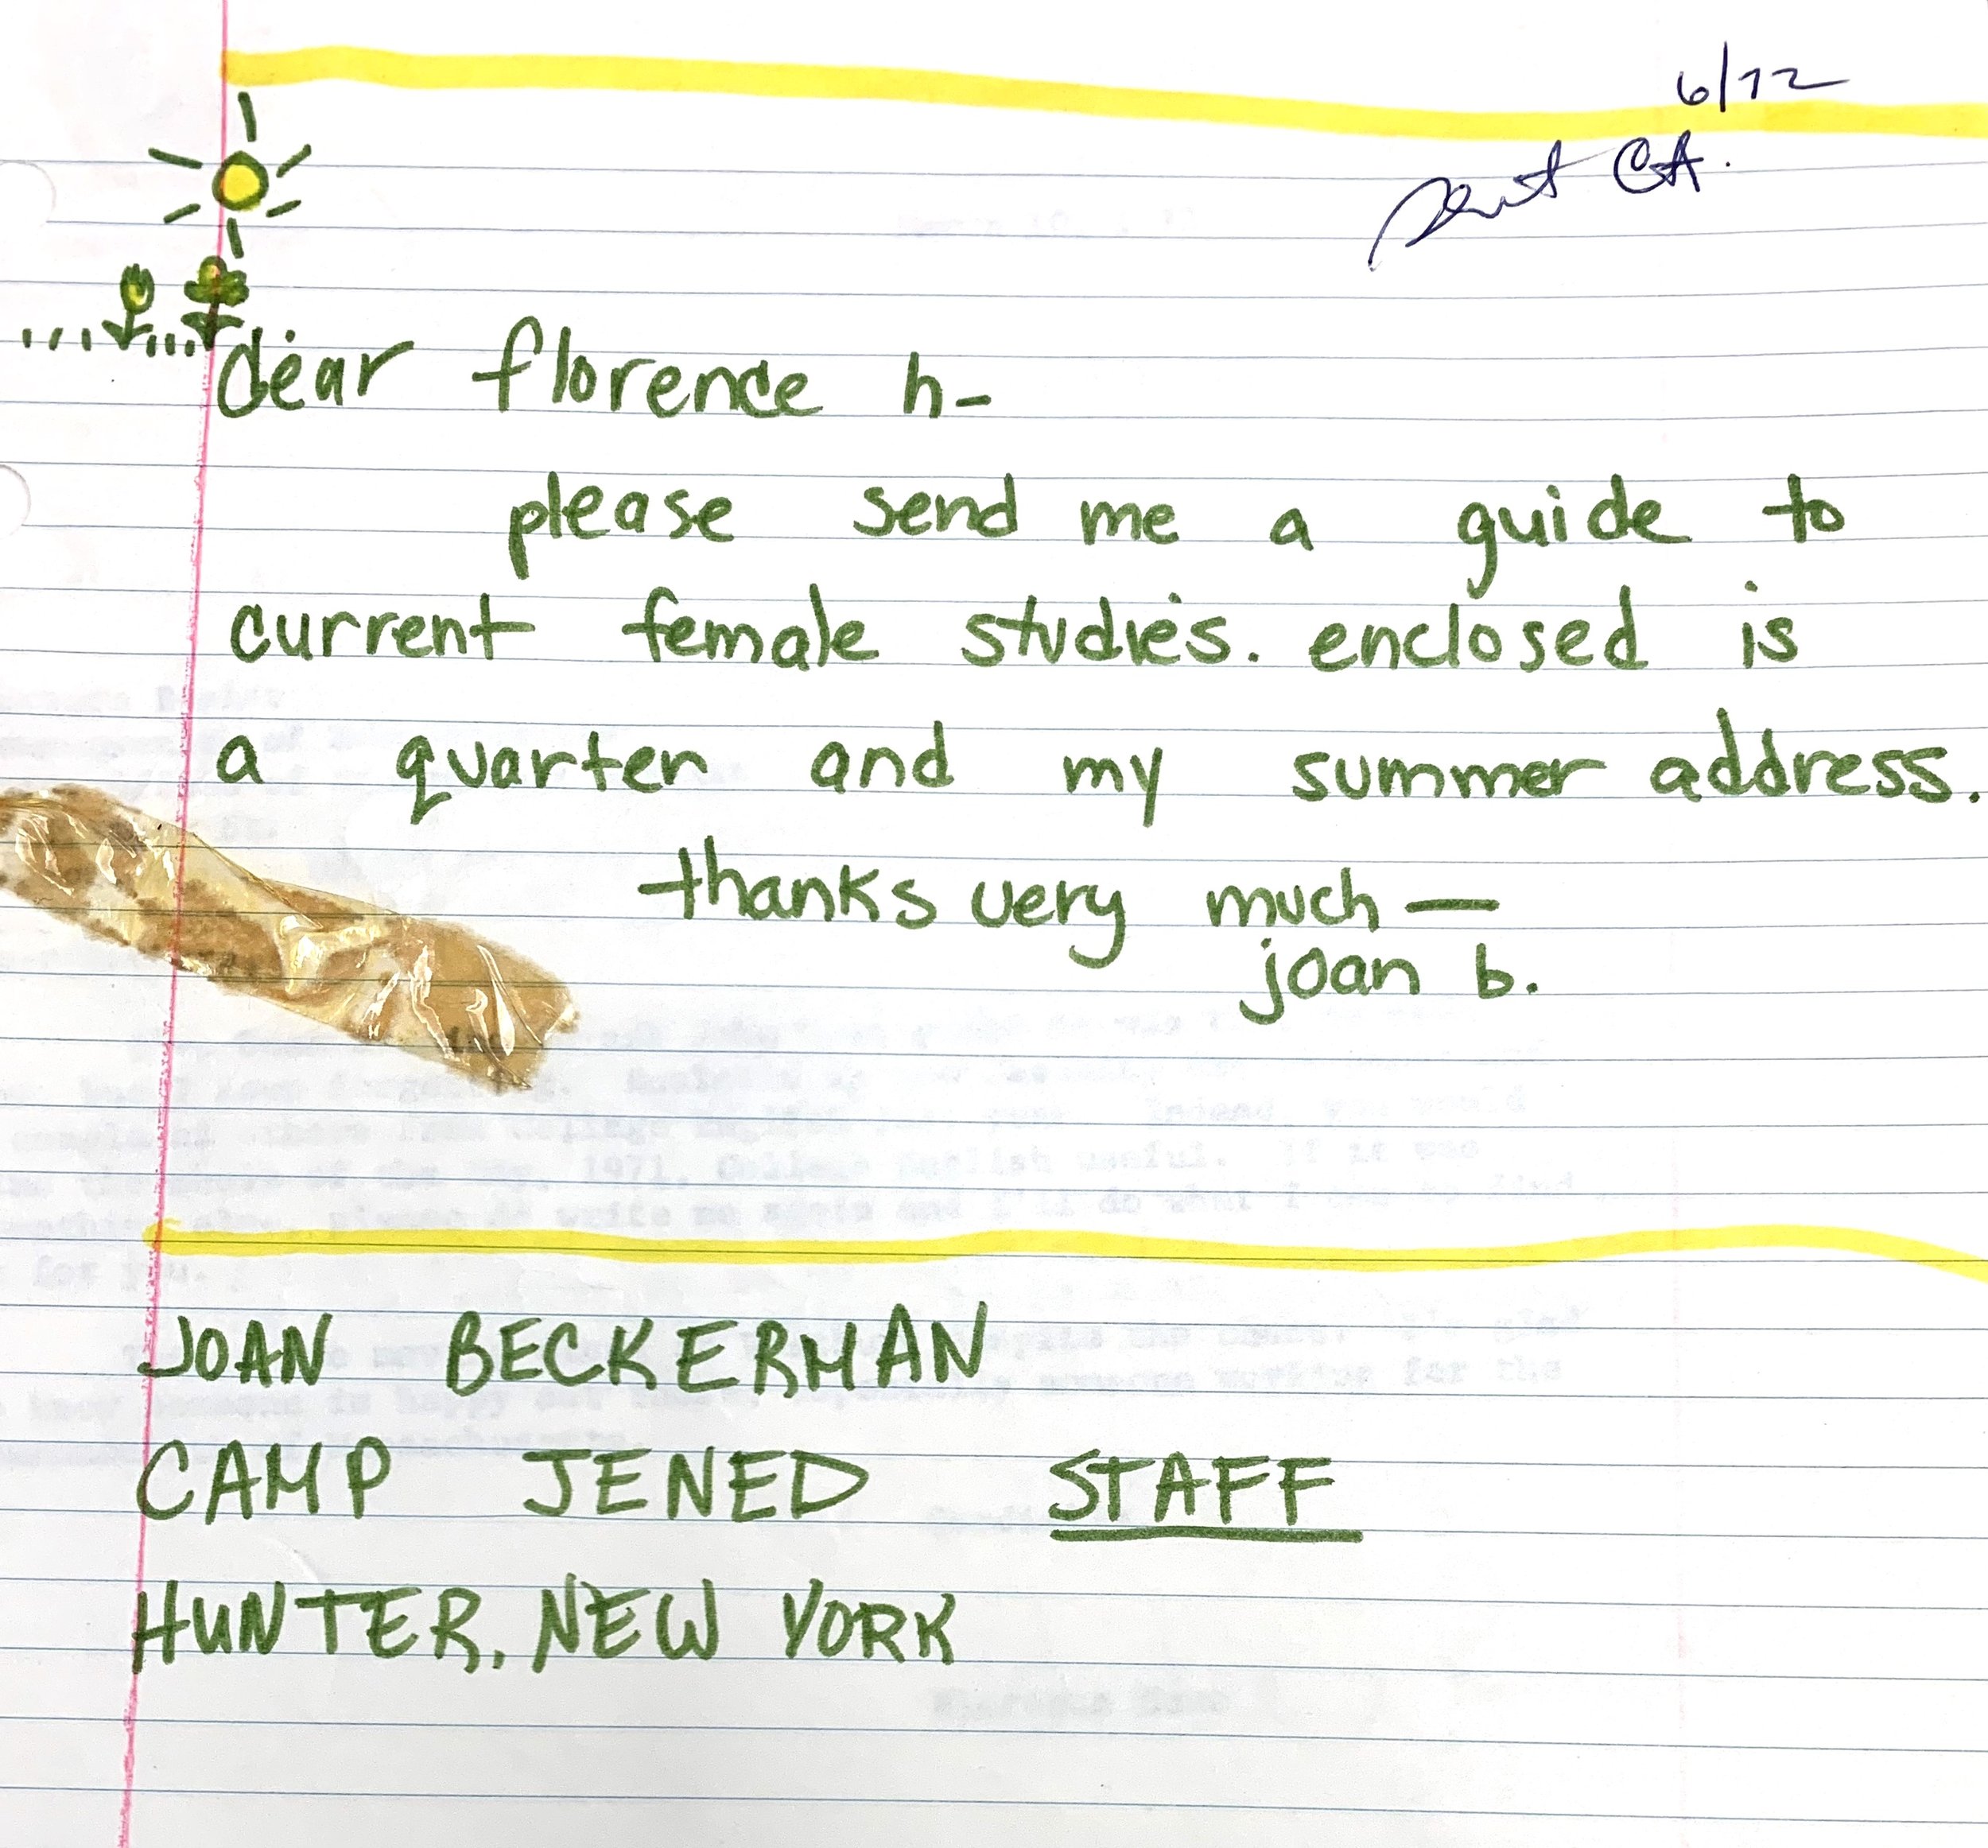 6/72
sent CA.
dear florence h-
please send me a guide to
current female studies. enclosed is
a quarter and my summer address.
thanks very much —
joan b.
JOAN BECKERMAN
CAMP JENED STAFF
HUNTER, NEW YORK